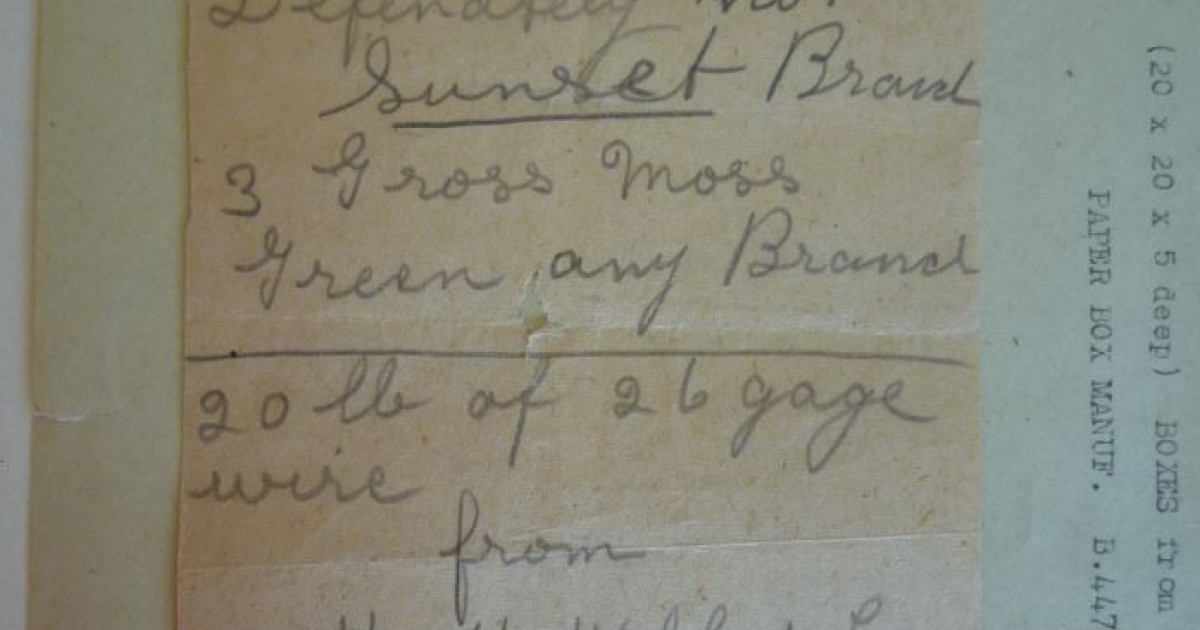 Definately not
Sunset Brand
3 Gross Moss
Green any Brand
20 lb of 26 gage
wire
from
(20 x 20 x 5 deep) BOXES from
PAPER BOX MANUF. B.447